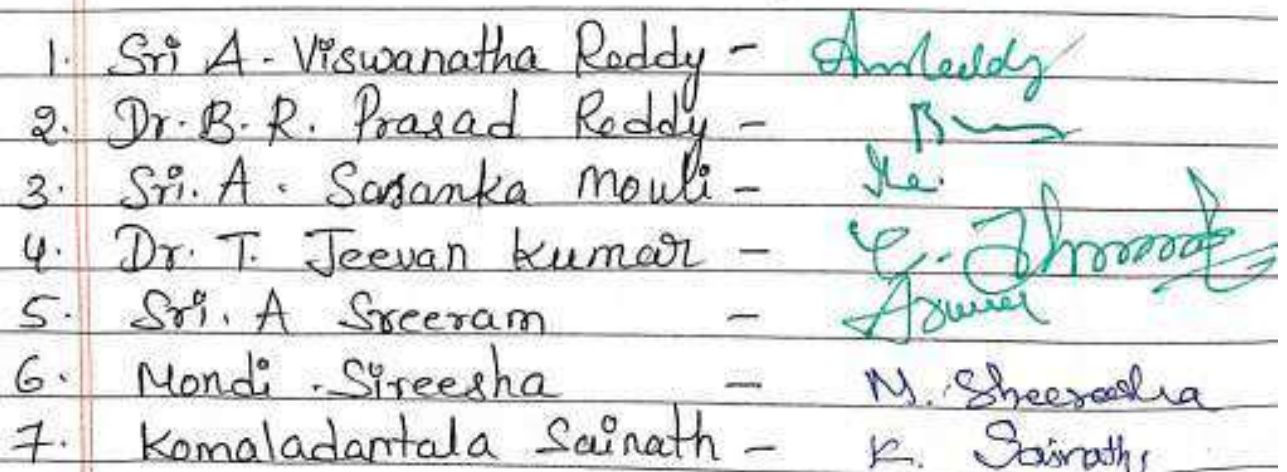 1. Sri A. Viswanatha Reddy -
2. Dr. B. R. Prasad Reddy -
3. Sri. A. Sasanka Mouli -
4. Dr. T. Jeevan Kumar -
5. Sri. A Sreeram -
6. Mondi . Sireesha - M. Sheereesha
7. Komaladantala Sainath - K. Sainath